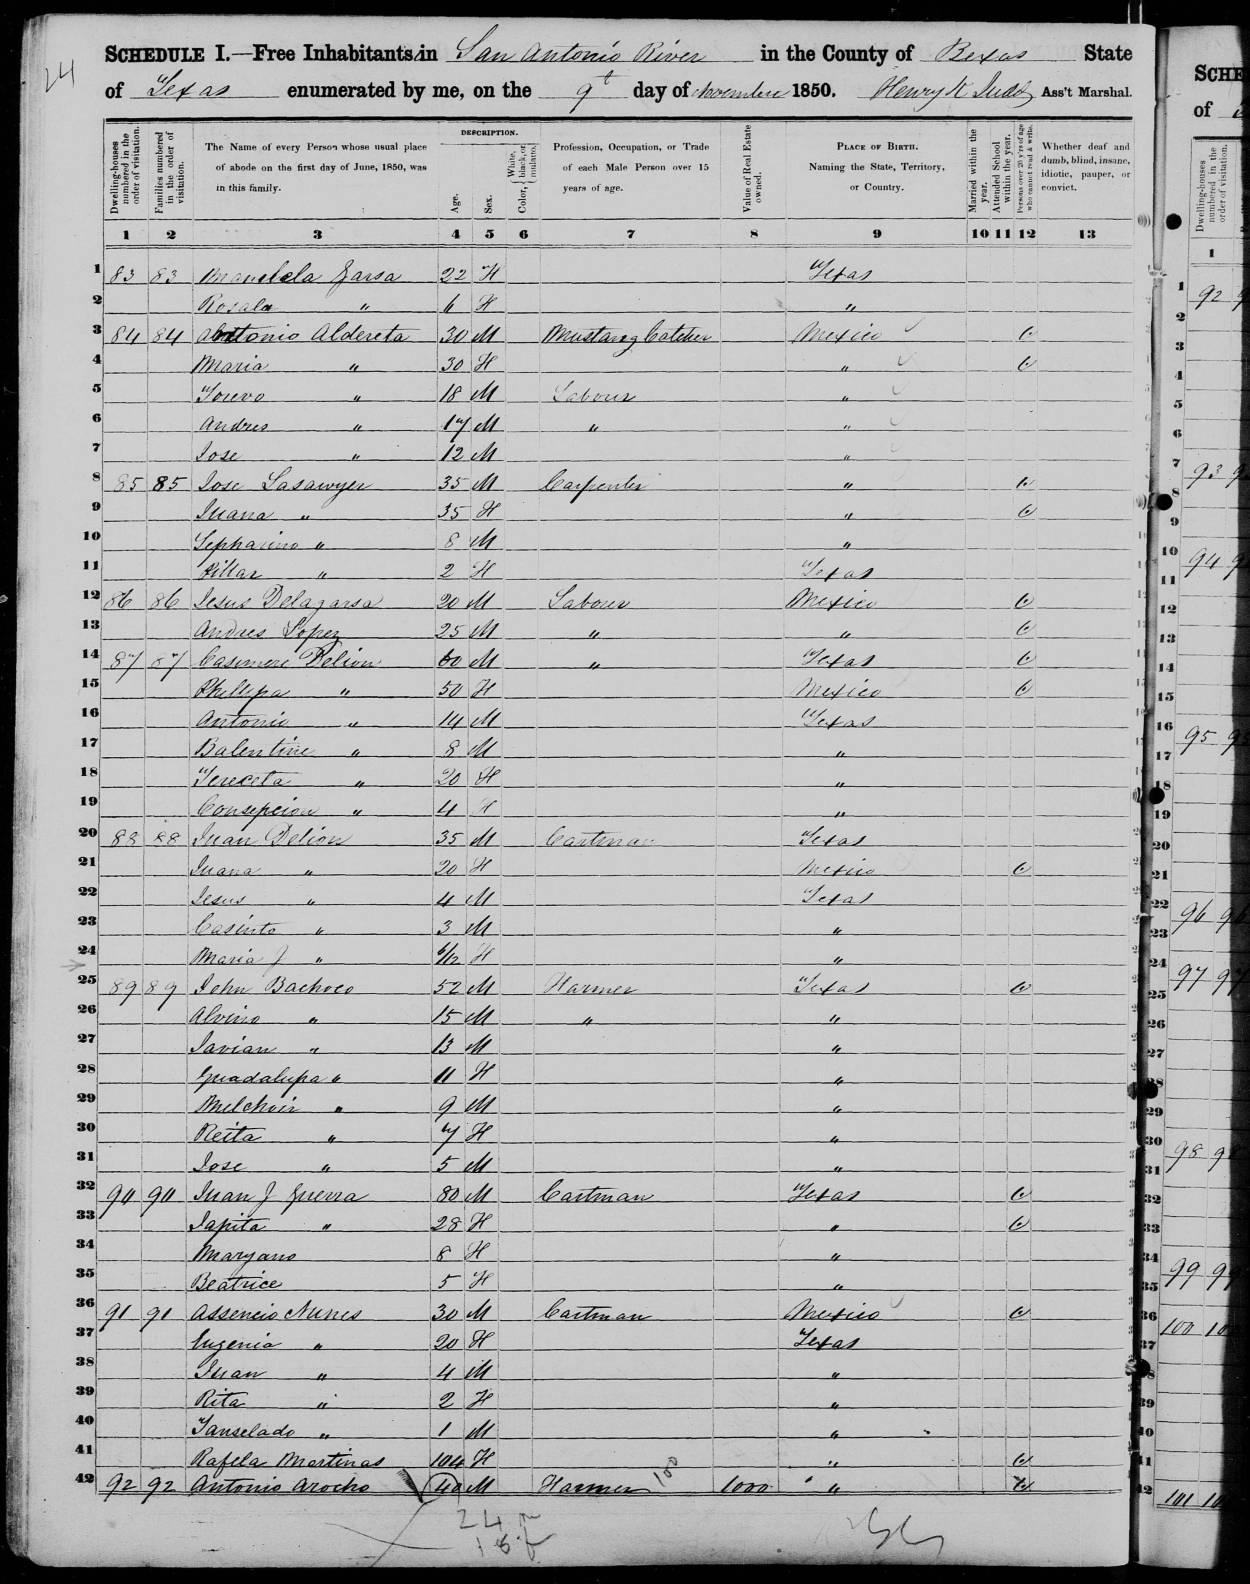 24
SCHEDULE I.—Free Inhabitants in San Antonio River in the County of Bexar State
of Texas enumerated by me, on the 9t day of November 1850. Henry K Judd Ass't Marshal.
Dwelling-houses numbered in the order of visitation. Families numbered in the order of visitation. The Name of every Person whose usual place of abode on the first day of June, 1850, was in this family. DESCRIPTION. Age. Sex. Color, { White, black, or mulatto. Profession, Occupation, or Trade of each Male Person over 15 years of age. Value of Real Estate owned. PLACE OF BIRTH. Naming the State, Territory, or Country. Married within the year. Attended School within the year. Persons over 20 y'rs of age who cannot read & write. Whether deaf and dumb, blind, insane, idiotic, pauper, or convict.
1 2 3 4 5 6 7 8 9 10 11 12 13
1 83 83 Garsa 22 F Texas
2 Rosala " 6 F "
3 84 84 Antonio Aldereta 30 M Mustang Catcher Mexico
4 Maria " 30 F "
5 " 18 M Labour "
6 Andres " 17 M " "
7 Jose " 12 M "
8 85 85 Jose Lasawyer 35 M Carpenter "
9 Juana " 35 F "
10 Sepharino " 8 M "
11 Pillar " 2 F Texas
12 86 86 Jesus Delagarsa 20 M Labour Mexico
13 Andres Lopez 25 M " "
14 87 87 Casimere Delion 60 M " Texas
15 Phillipa " 50 F Mexico
16 Antonio " 14 M Texas
17 Balentine " 8 M "
18 Tereceta " 20 F "
19 Consepcion " 4 F "
20 88 88 Juan Delion 35 M Cartman Texas
21 Juana " 20 F Mexico
22 Jesus " 4 M Texas
23 Casinto " 3 M "
24 Maria J " 6/12 F "
25 89 89 John Bachoco 52 M Farmer Texas
26 Alvino " 15 M " "
27 Javian " 13 M "
28 Guadalupa " 11 F "
29 Melchoir " 9 M "
30 Reita " 7 F "
31 Jose " 5 M "
32 90 90 Juan J Guerra 80 M Cartman Texas
33 Japita " 28 F "
34 Maryano 8 F "
35 Beatrice 5 F "
36 91 91 Assencio Nunes 30 M Cartman Mexico
37 Eugenia " 20 F Texas
38 Juan " 4 M "
39 Rita " 2 F "
40 Tanselado " 1 M "
41 Rafela Martinas 104 F "
42 92 92 Antonio Arocho 40 M Farmer 100 1000 "
24
18
SCHE
of
Dwelling-houses numbered in the order of visitation.
1
1 92
2
3
4
5
6
7 93
8
9
10 94
11
12
13
14
15
16 95
17
18
19
20
21
22 96
23
24 97
25
26
27
28
29
30 98
31
32
33
34
35 99
36 100
37
39
40
101